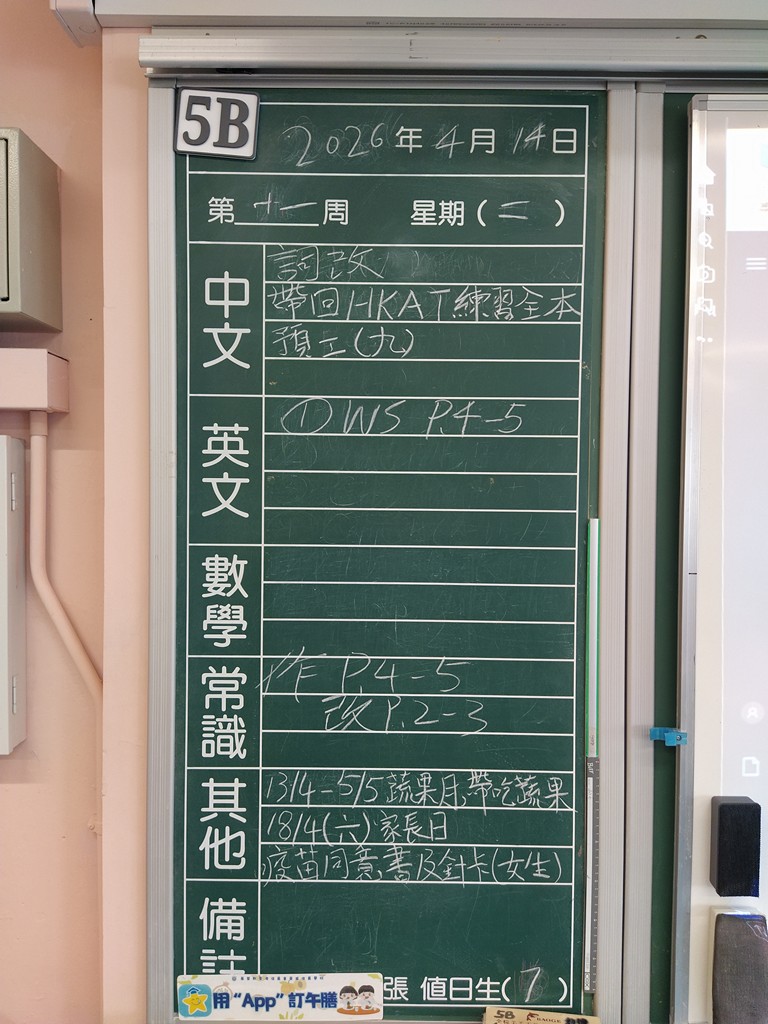 5B
2026年4月14日
第十一周 星期(二)
中文
詞改
帶回HKAT練習全本
預工(九)
英文
①WS P.4-5
數學
常識
作 P.4-5
改P.2-3
其他
13/4-5/5蔬果月,帶吃蔬果
18/4(六)家長日
疫苗同意書及針卡(女生)
備註
張 值日生(7)
用“App”訂午膳
5B